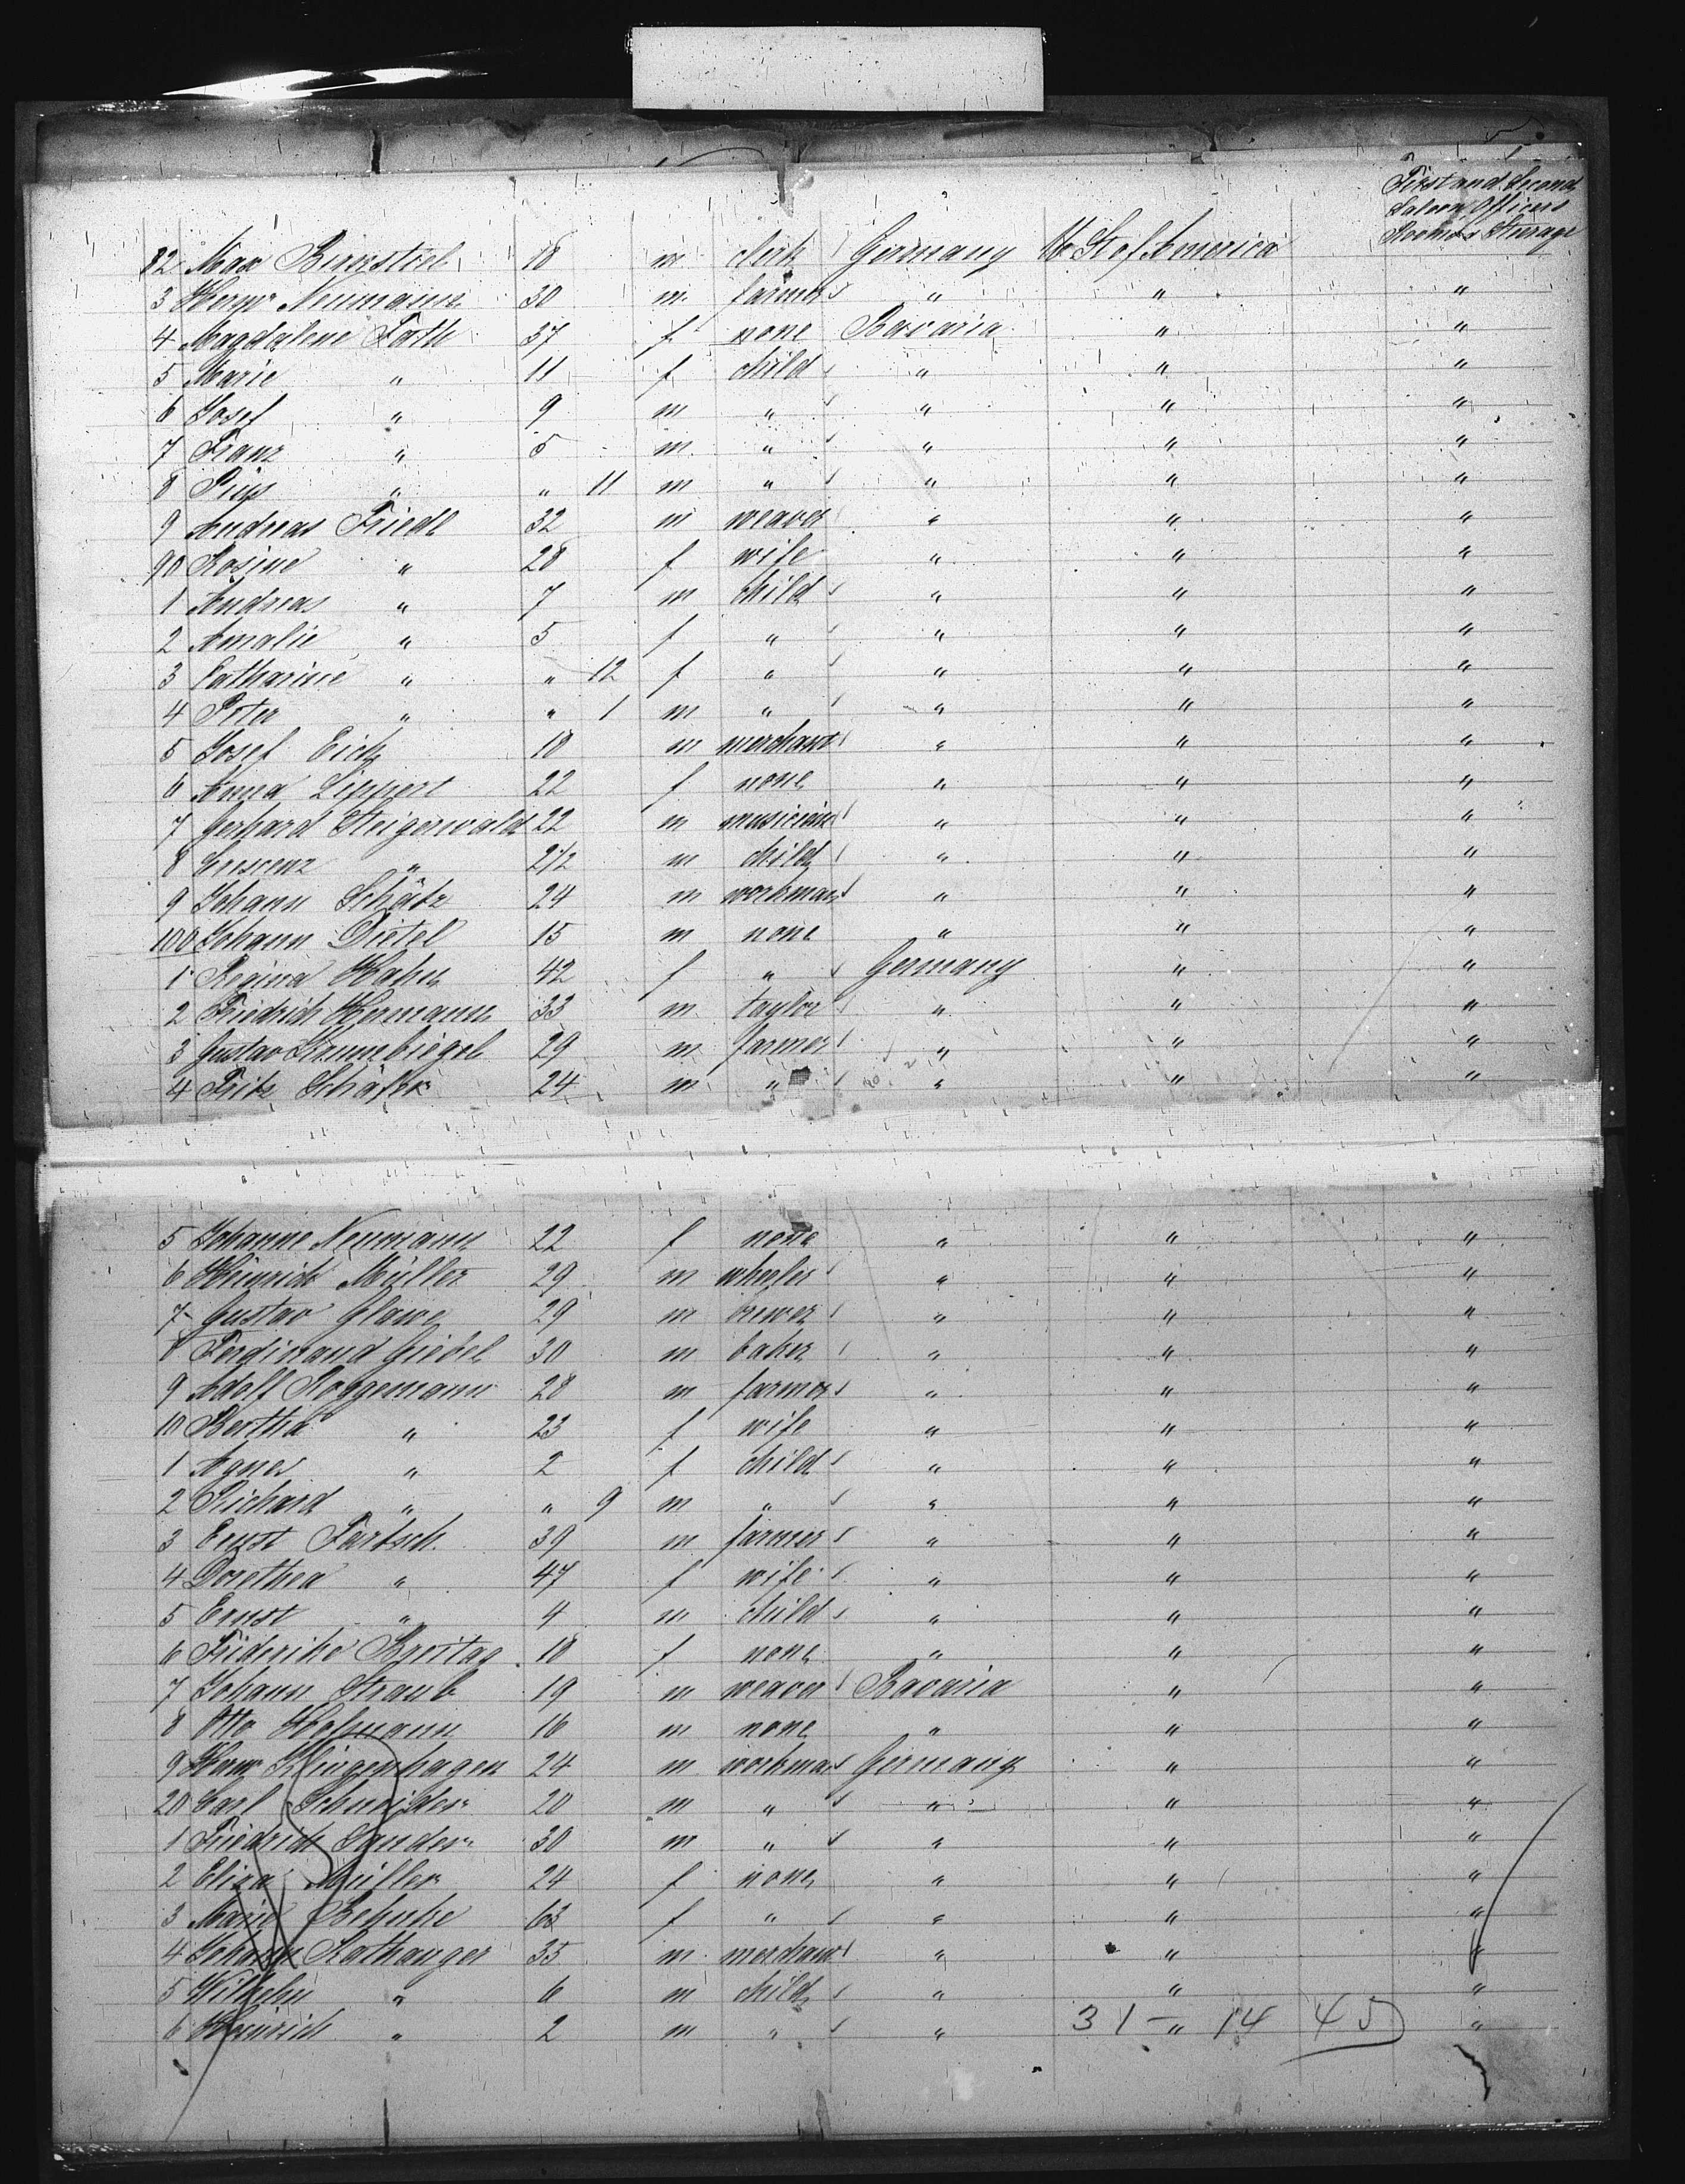 First and Second
Saloon, Officers
Rooms & Steerage
82 Max 18 m clerk Germany U. St. of America
3 Herm. Neumann 30 m farmer " " "
4 Magdalene Fath 37 f none Bavaria " "
5 Marie " 11 f child " " "
6 Josef " 9 m " " " "
7 Franz " 5 m " " " "
8 Pius " " 11 m " " " "
9 Andreas Friedl 32 m weaver " " "
90 Rosine " 28 f wife " " "
1 Andreas " 7 m child " " "
2 Amalie " 5 f " " " "
3 Catharine " " 12 f " " " "
4 Peter " " 1 m " " " "
5 Josef Eich 18 m merchant " " "
6 Anna Lippert 22 f none " " "
7 Gerhard Steigerwald 22 m musician " " "
8 Crescenz " 2 1/2 m child " " "
9 Johann Schätz 24 m workman " " "
100 Johann Dietel 15 m none " " "
1 Regina Hahn 42 f " Germany " "
2 Friedrich Hermann 33 m taylor " " "
3 Gustav Krumbiegel 29 m farmer " " "
4 Fritz Schäfer 24 m " " " "
5 Johanne Neumann 22 f none " " "
6 Heinrich Müller 29 m wheeler " " "
7 Gustav Glawe 29 m brewer " " "
8 Ferdinand Giebel 30 m baker " " "
9 Adolf Roggemann 28 m farmer " " "
10 Bertha " 23 f wife " " "
1 Agnes " 2 f child " " "
2 Richard " " 9 m " " " "
3 Ernst Fartsch 39 m farmer " " "
4 Dorethea " 47 f wife " " "
5 Ernst " 4 m child " " "
6 Friderike Breitag 18 f none " " "
7 Johann Straub 19 m weaver Bavaria " "
8 Otto Hofmann 16 m none " " "
9 Herm. Klingenhagen 24 m workman Germany " "
20 Carl Schneider 20 m " " " "
1 Friedrich Sander 30 m " " " "
2 Eliza Müller 24 f none " " "
3 Marie Behnke 63 f " " " "
4 Johann Rathanger 35 m merchant " " "
5 Wilhelm " 6 m child " " "
6 Heinrich " 2 m " " 31 - " 14 45 "